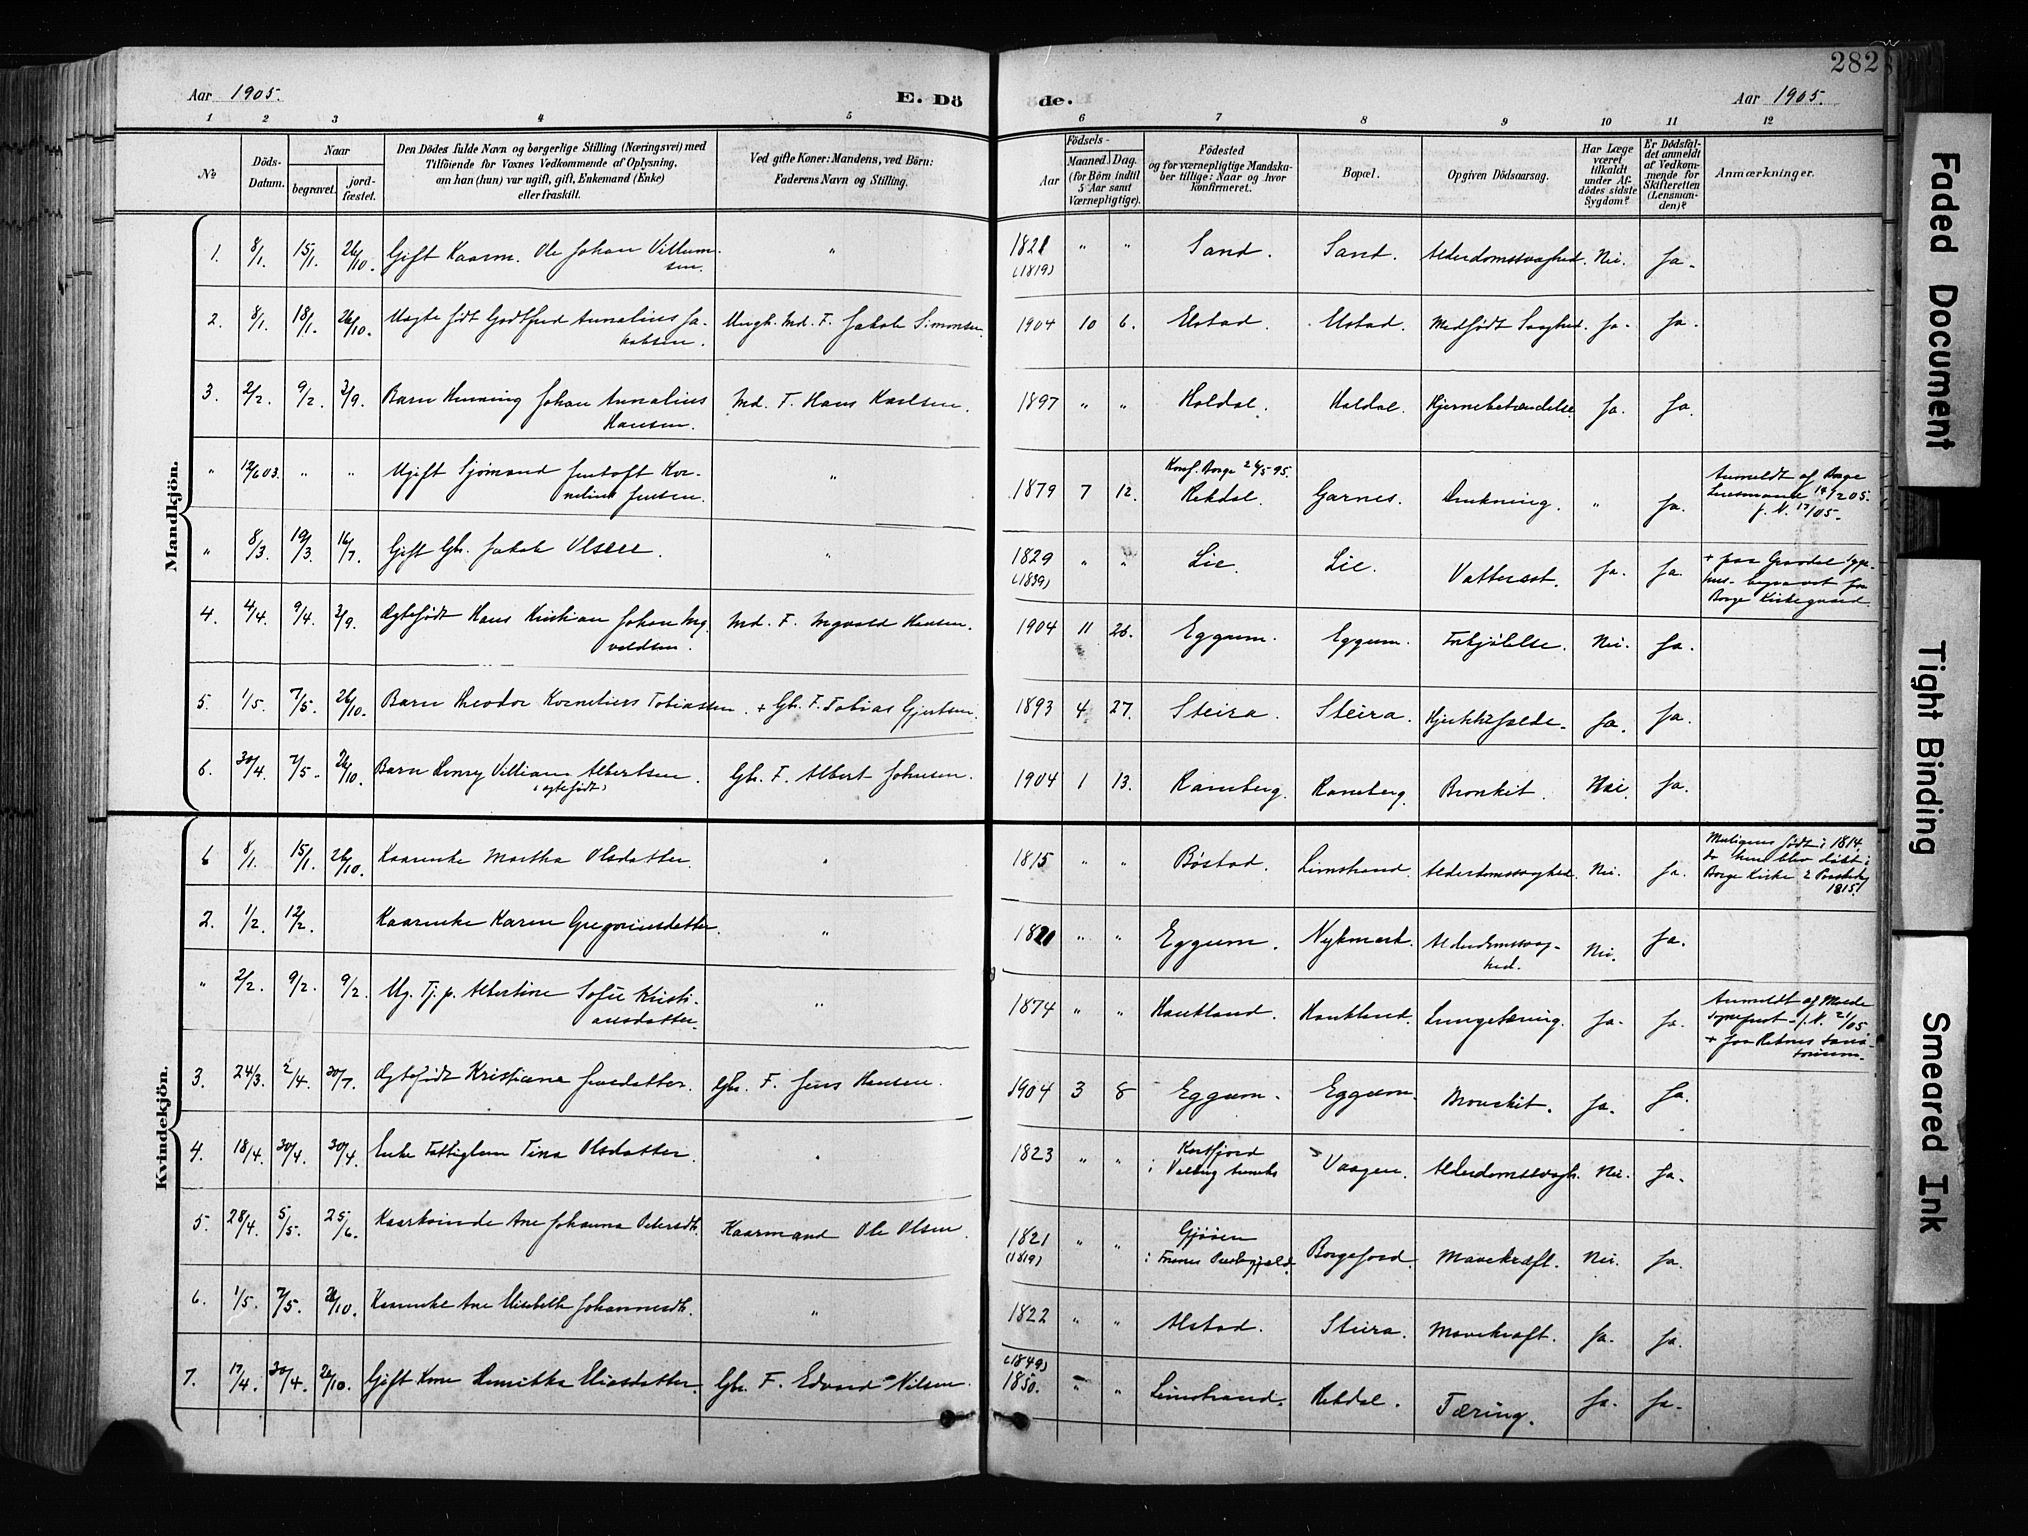 282
Aar 1905.
E. Dö
de.
Aar 1905.
1 2 3 4 5 6 7 8 9 10 11 12
№
Döds-
Datum.
Naar
begravet.
jord-
fæstet.
Den Dödes fulde Navn og borgerlige Stilling (Næringsvei) med
Tilföiende for Voxnes Vedkommende af Oplysning,
om han (hun) var ugift, gift, Enkemand (Enke)
eller fraskilt.
Ved gifte Koner: Mandens, ved Börn:
Faderens Navn og Stilling.
Födsels-
Aar
Maaned. Dag.
(for Börn indtil
5 Aar samt
Værnepligtige).
Födested
og for værnepligtige Mandska-
ber tillige: Naar og hvor
konfirmeret.
Bopæl.
Opgiven Dödsaarsag.
Har Læge
været
tilkaldt
under Af-
dödes sidste
Sygdom?
Er Dödsfal-
det anmeldt
af Vedkom-
mende for
Skifteretten
(Lensman-
den)?
Anmærkninger.
Mandkjön.
1. 8/1. 15/1. 26/10. Gift Kaarm. Ole Johan Villum-
sen. " 1821 (1819) " " Sand. Sand. Alderdomssvaghed. Nei. Ja.
2. 8/1. 18/1. 26/10. Uægte født Godtfred Annalius Ja-
kobsen. Ungk. Md. F. Jakob Simonsen 1904 10 6. Elstad. Elstad. Medfødt Svaghed. Ja. Ja.
3. 2/2. 9/2. 3/9. Barn Henning Johan Annalius
Hansen. Md. F. Hans Karlsen. 1897 " " Holdal. Holdal. Hjernebetændelse. Ja. Ja.
" 12/6 03. " " Ugift Sjømand Jentoft Kor-
nelius Jensen. " 1879 7 12. Konf. Borge 26/5 95.
Rekdal. Garnes. Drukning. " Ja. Anmeldt af Borge
Lensmand 14/2 05.
J. N. 17/05.
" 8/3. 19/3 16/7. Gift Gbr. Jakob Olsen. " 1829 (1839) " " Lie. Lie. Vattersot. Ja. Ja. + paa Gravdal Syge-
hus. begravet paa
Borge Kirkegaard.
4. 4/4. 9/4. 3/9. Ægtefødt Hans Kristian Johan Ing-
valdsen. Md. F. Ingvald Hansen. 1904 11 26. Eggum. Eggum. Forkjølelse. Nei. Ja.
5. 1/5. 7/5. 26/10. Barn Theodor Kornelius Tobiassen. + Gbr. F. Tobias Gjertsen. 1893 4 27. Steira. Steira. Hjertefeil. Ja. Ja.
6. 30/4. 7/5. 26/10. Barn Henry Villiam Albertsen.
(ægtefødt) Gbr. F. Albert Johnsen. 1904 1 13. Ramberg. Ramberg. Bronkit. Nei. Ja.
Kvindekjön.
8/1. 15/1. 26/10. Kaarenke Martha Olsdatter. " 1815 " " Bøstad. Limstrand. Alderdomssvaghed. Nei. Ja. Muligens født i 1814
da hun blev døbt i
Borge Kirke 2 Paaskedag
1815.
2. 1/2. 12/2. Kaarenke Karen Gregoriusdatter. " 1821 " " Eggum. Nykmark. Alderdomssvag-
hed. Nei. Ja.
" 2/2. 9/2. 9/2. Ug. Tj. p. Albertine Sofie Kristi-
ansdatter. " 1874 " " Haukland. Haukland. Lungetæring. Ja. Ja. Anmeldt af Molde
Sogneprest J. N. 21/05
+ paa Reknes Sana-
torium.
3. 24/3. 2/4. 30/7. Ægtefødt Kristiane Jensdatter. Gbr. F. Jens Hansen. 1904 3 8 Eggum. Eggum. Bronkit. Ja. Ja.
4. 18/4. 30/4. 30/4. Enke Fattiglem Tina Olsdatter. " 1823 " " Kartfjord
i Valberg Annex Vaagen. Alderdomssvagh. Nei. Ja.
5. 28/4. 5/5. 25/6. Kaarkvinde Ane Johanna Pedersdtr. Kaarmand Ole Olsen. 1821 (1819) " " Gjøsen
i Præstegjeld. Borgefjord. Mavekræft. Nei. Ja.
6. 1/5. 7/5. 26/10. Kaarenke Ane Elisabeth Johannesdtr. " 1822 " " Alstad. Steira. Mavekræft. Ja. Ja.
7. 17/4. 30/4. 26/10. Gift Kone Henrikka Eliasdatter. Gbr. F. Edvard Nilsen. (1849) 1850. " " Limstrand. Rekdal. Tæring. Ja. Ja.
Faded Document
Tight Binding
Smeared Ink